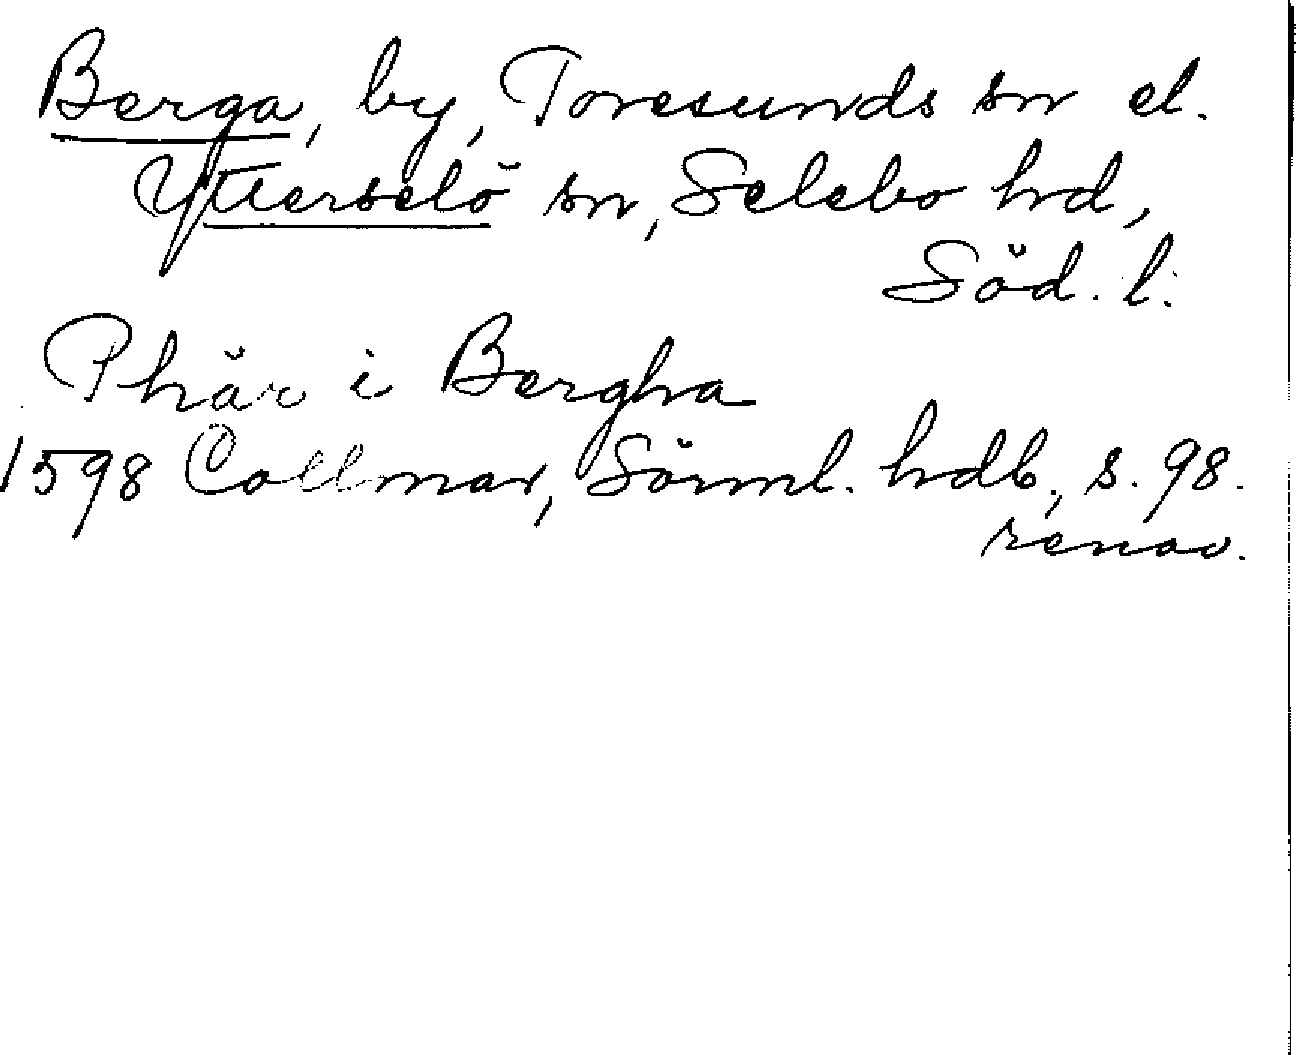 Berga, by, Toresunds sn el.
Ytterselö sn, Selebo hd,
Söd. l.
Phär i Bergha
1598 Collmar, Sörml. hdb, s. 98.
renov.